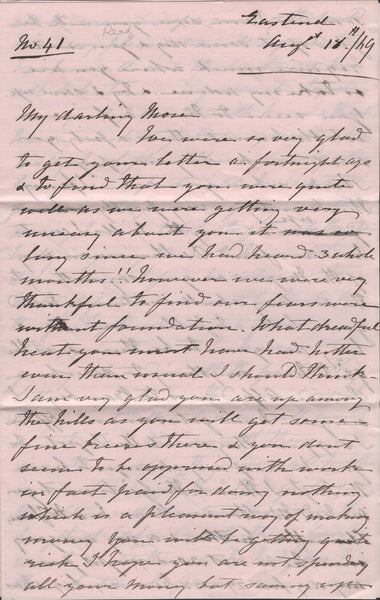 Eastend
Read
No 41
Augst 18th/69
My darling Mose
We were so very glad
to get your letter a fortnight ago
& to find that you were quite
well as we were getting very
uneasy about you it was so
long since we had heard 3 whole
months!! however we were very
thankful to find our fears were
without foundation. What dreadful
heat you must have had hotter
even than usual I should think.
I am very glad you are up among
the hills as you will get some
fine breezes there & you don't
seem to be oppressed with work
in fact paid for doing nothing
which is a pleasant way of making
money you will be getting quite
rich I hope you are not spending
all your money but saving up